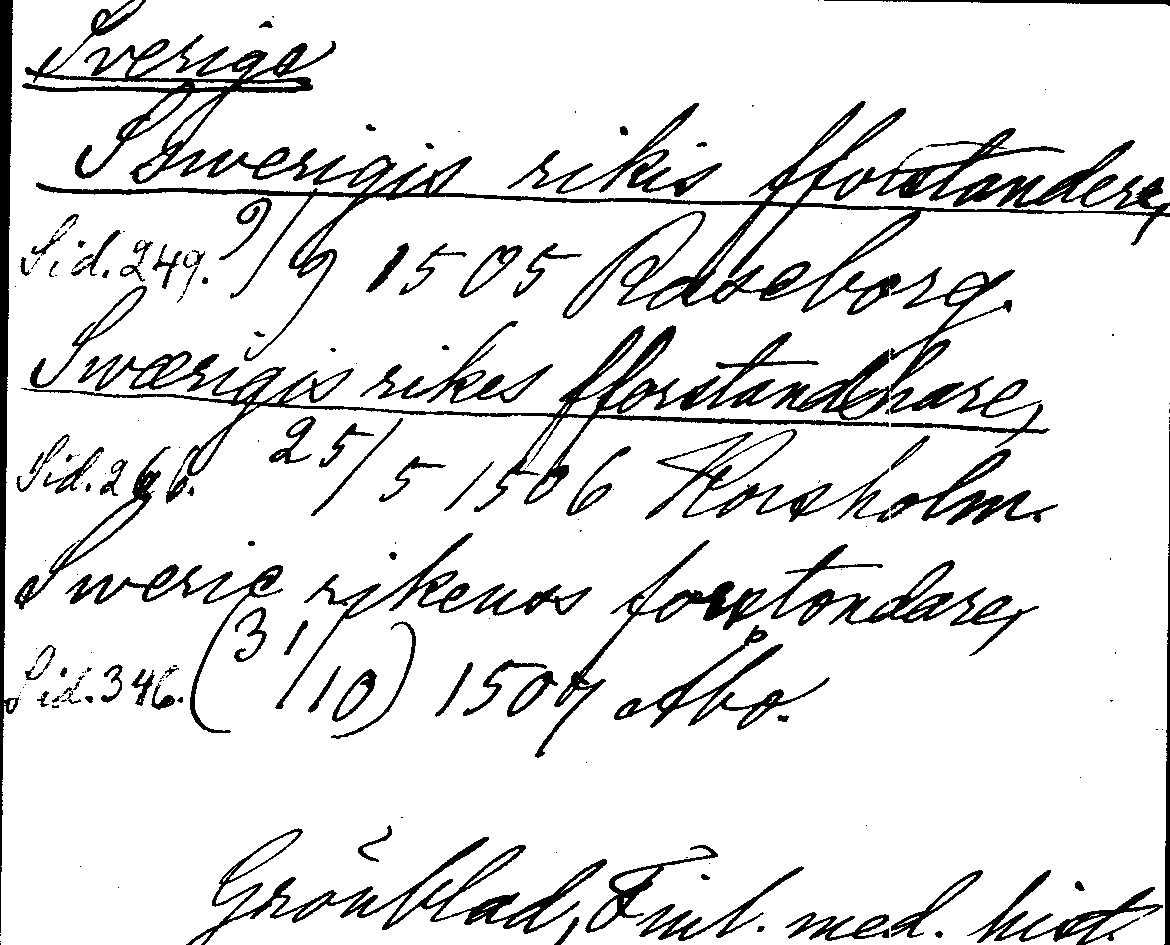 Sverige
Swerigis rikis fforstandere,
Sid. 249. 9/9 1505 Raseborg.
Swærigis rikes fforstandhare,
Sid. 266. 25/5 1506 Korsholm.
Sweric rikenss forstondare,
Sid. 346. (31/10) 1507 Åbo.
Grönblad, Finl. med. hist.